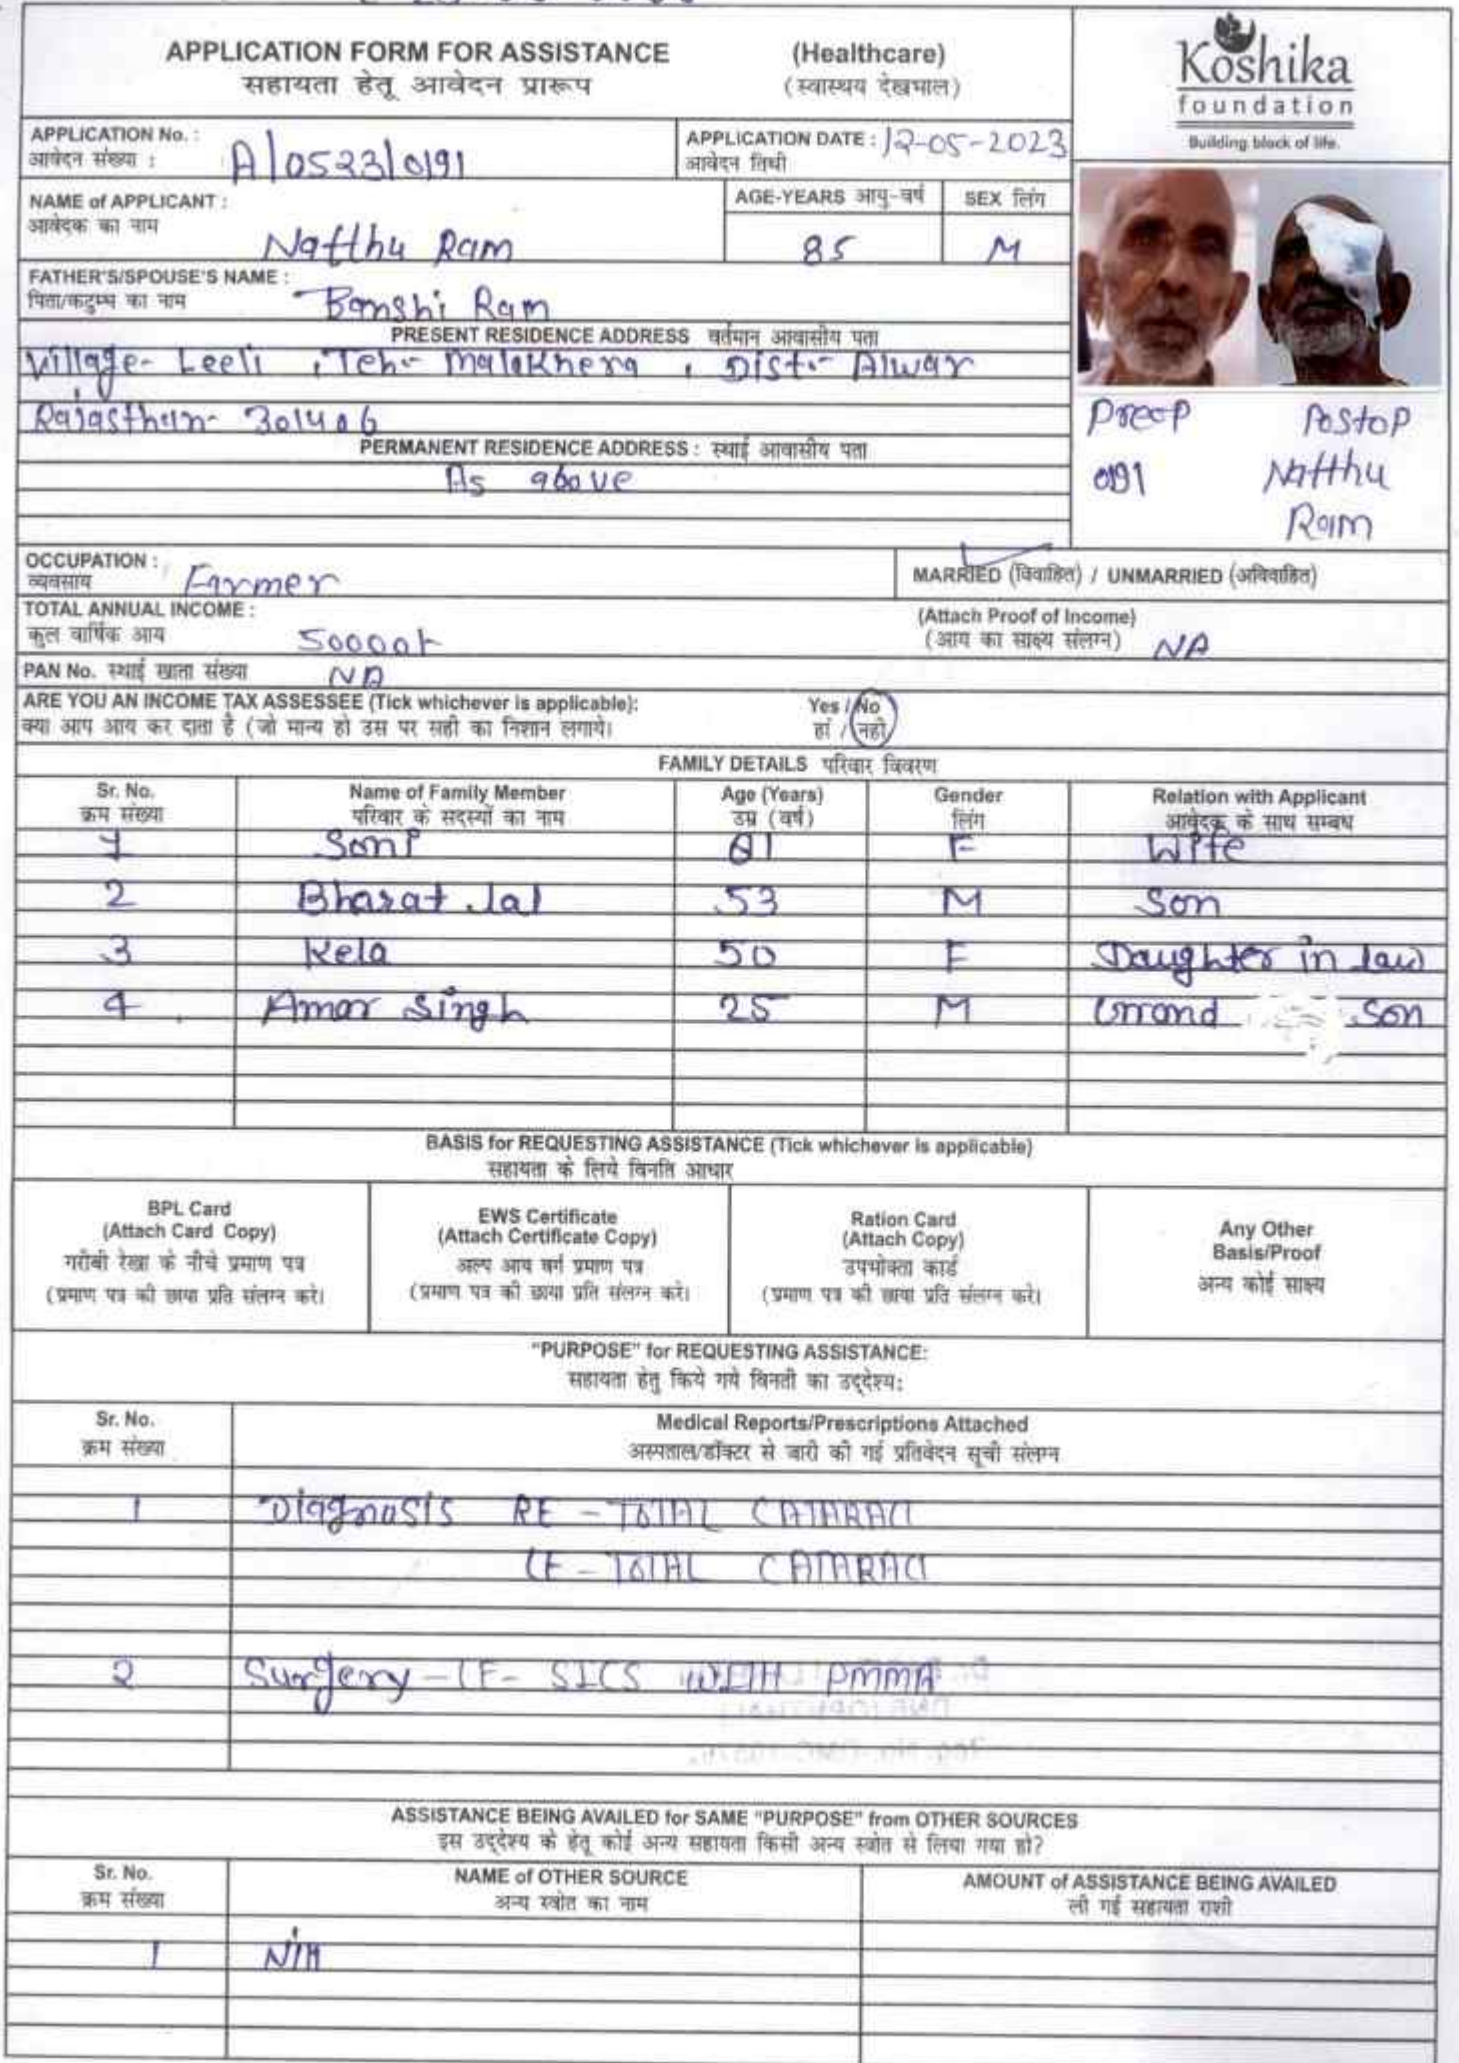 APPLICATION FORM FOR ASSISTANCE (Healthcare)
सहायता हेतू आवेदन प्रारूप (स्वास्थय देखभाल)
Koshika
foundation
Building block of life.
APPLICATION No. :
आवेदन संख्या : A/0523/0191
APPLICATION DATE : 12-05-2023
आवेदन तिथी
NAME of APPLICANT :
आवेदक का नाम Natthu Ram
AGE-YEARS आयु-वर्ष
85
SEX लिंग
M
FATHER'S/SPOUSE'S NAME :
पिता/कटुम्ब का नाम Banshi Ram
PRESENT RESIDENCE ADDRESS वर्तमान आवासीय पता
Village- Leeli , Teh- Malakhera , Dist- Alwar
Rajasthan- 301406
PERMANENT RESIDENCE ADDRESS : स्थाई आवासीय पता
As above
Preop Postop
0191 Natthu
Ram
OCCUPATION :
व्यवसाय Farmer
MARRIED (विवाहित) / UNMARRIED (अविवाहित)
TOTAL ANNUAL INCOME :
कुल वार्षिक आय 50000/-
(Attach Proof of Income)
(आय का साक्ष्य संलग्न) NA
PAN No. स्थाई खाता संख्या NA
ARE YOU AN INCOME TAX ASSESSEE (Tick whichever is applicable): Yes / No
क्या आप आय कर दाता है (जो मान्य हो उस पर सही का निशान लगाये। हां / नही
FAMILY DETAILS परिवार विवरण
Sr. No. Name of Family Member Age (Years) Gender Relation with Applicant
क्रम संख्या परिवार के सदस्यों का नाम उम्र (वर्ष) लिंग आवेदक के साथ सम्बध
1 Soni F Wife
2 Bharat lal 53 M Son
3 Kela 50 F Daughter in law
4 Amar Singh 25 M Grand Son
BASIS for REQUESTING ASSISTANCE (Tick whichever is applicable)
सहायता के लिये विनति आधार
BPL Card
(Attach Card Copy)
गरीबी रेखा के नीचे प्रमाण पत्र
(प्रमाण पत्र की छाया प्रति संलग्न करे।
EWS Certificate
(Attach Certificate Copy)
अल्प आय वर्ग प्रमाण पत्र
(प्रमाण पत्र की छाया प्रति संलग्न करे।
Ration Card
(Attach Copy)
उपभोक्ता कार्ड
(प्रमाण पत्र की छाया प्रति संलग्न करे।
Any Other
Basis/Proof
अन्य कोई साक्ष्य
"PURPOSE" for REQUESTING ASSISTANCE:
सहायता हेतु किये गये विनती का उद्देश्य:
Sr. No. Medical Reports/Prescriptions Attached
क्रम संख्या अस्पताल/डॉक्टर से जारी की गई प्रतिवेदन सूची संलग्न
1 Diagnosis RE - TOTAL CATARACT
LE - TOTAL CATARACT
2 Surgery - LE - SICS WITH PMMA
ASSISTANCE BEING AVAILED for SAME "PURPOSE" from OTHER SOURCES
इस उद्देश्य के हेतू कोई अन्य सहायता किसी अन्य स्त्रोत से लिया गया हो?
Sr. No. NAME of OTHER SOURCE AMOUNT of ASSISTANCE BEING AVAILED
क्रम संख्या अन्य स्त्रोत का नाम ली गई सहायता राशी
1